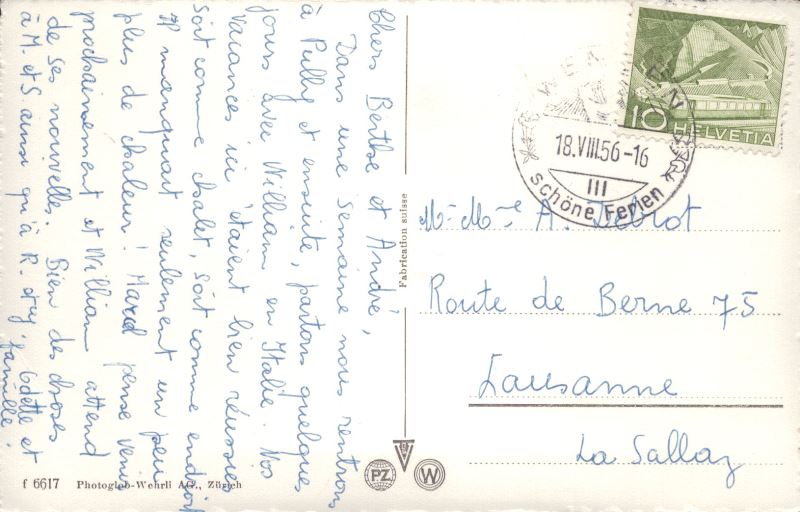 Chers Berthe et André,
Dans une semaine nous rentrons
à Pully et ensuite, partons quelques
jours avec William en Italie. Nos
vacances ici étaient bien réussies
soit comme chalet, soit comme endroit
Il manquait seulement un peu
plus de chaleur! Marcel pense venir
prochainement et William attend
de ses nouvelles. Bien des choses
à M. et S. ainsi qu'à R. et
Odette et
famille.
f 6617 Photoglob-Wehrli AG., Zürich
Fabrication suisse
PZ
W
WEN
18.VIII.56-16
III
schöne Ferien
10 HELVETIA
Mr Mme A.
Route de Berne 75
Lausanne
La Sallaz